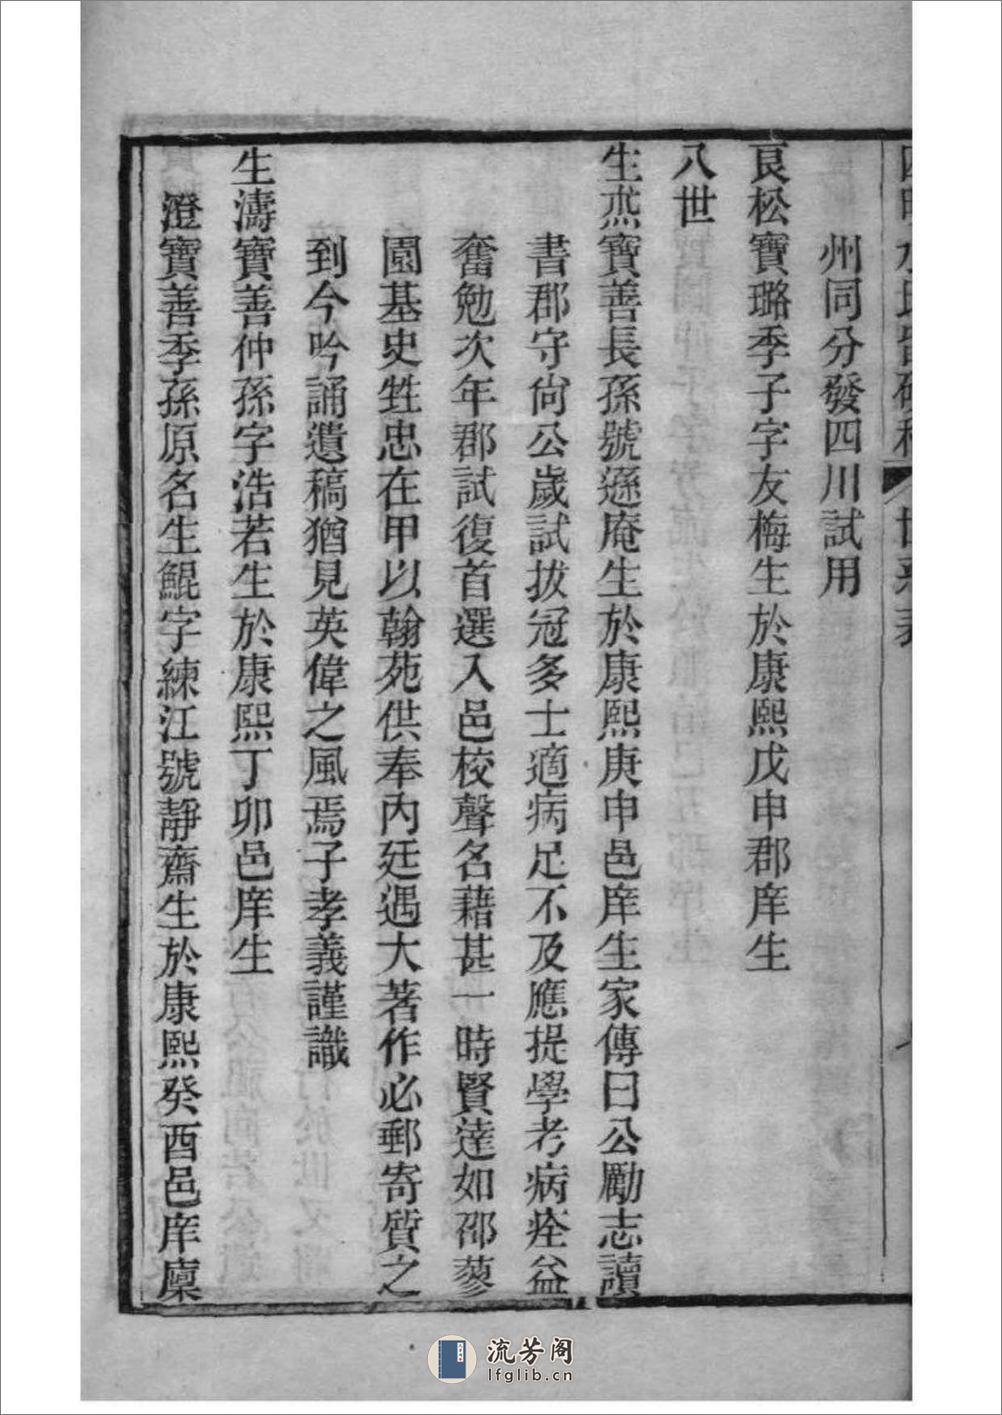 四明水氏留碩稿 世系表
州同分發四川試用
良松寶璐季子字友梅生於康熙戊申郡庠生
八世
生烝寶善長孫號遜庵生於康熙庚申邑庠生家傳曰公勵志讀
書郡守尙公歲試拔冠多士適病足不及應提學考病痊益
奮勉次年郡試復首選入邑校聲名藉甚一時賢達如邵蓼
園基史甡忠在甲以翰苑供奉內廷遇大著作必郵寄質之
到今吟誦遺稿猶見英偉之風焉子孝義謹識
生濤寶善仲孫字浩若生於康熙丁卯邑庠生
澄寶善季孫原名生鯤字練江號靜齋生於康熙癸酉邑庠廩
流芳阁
lfglib.cn